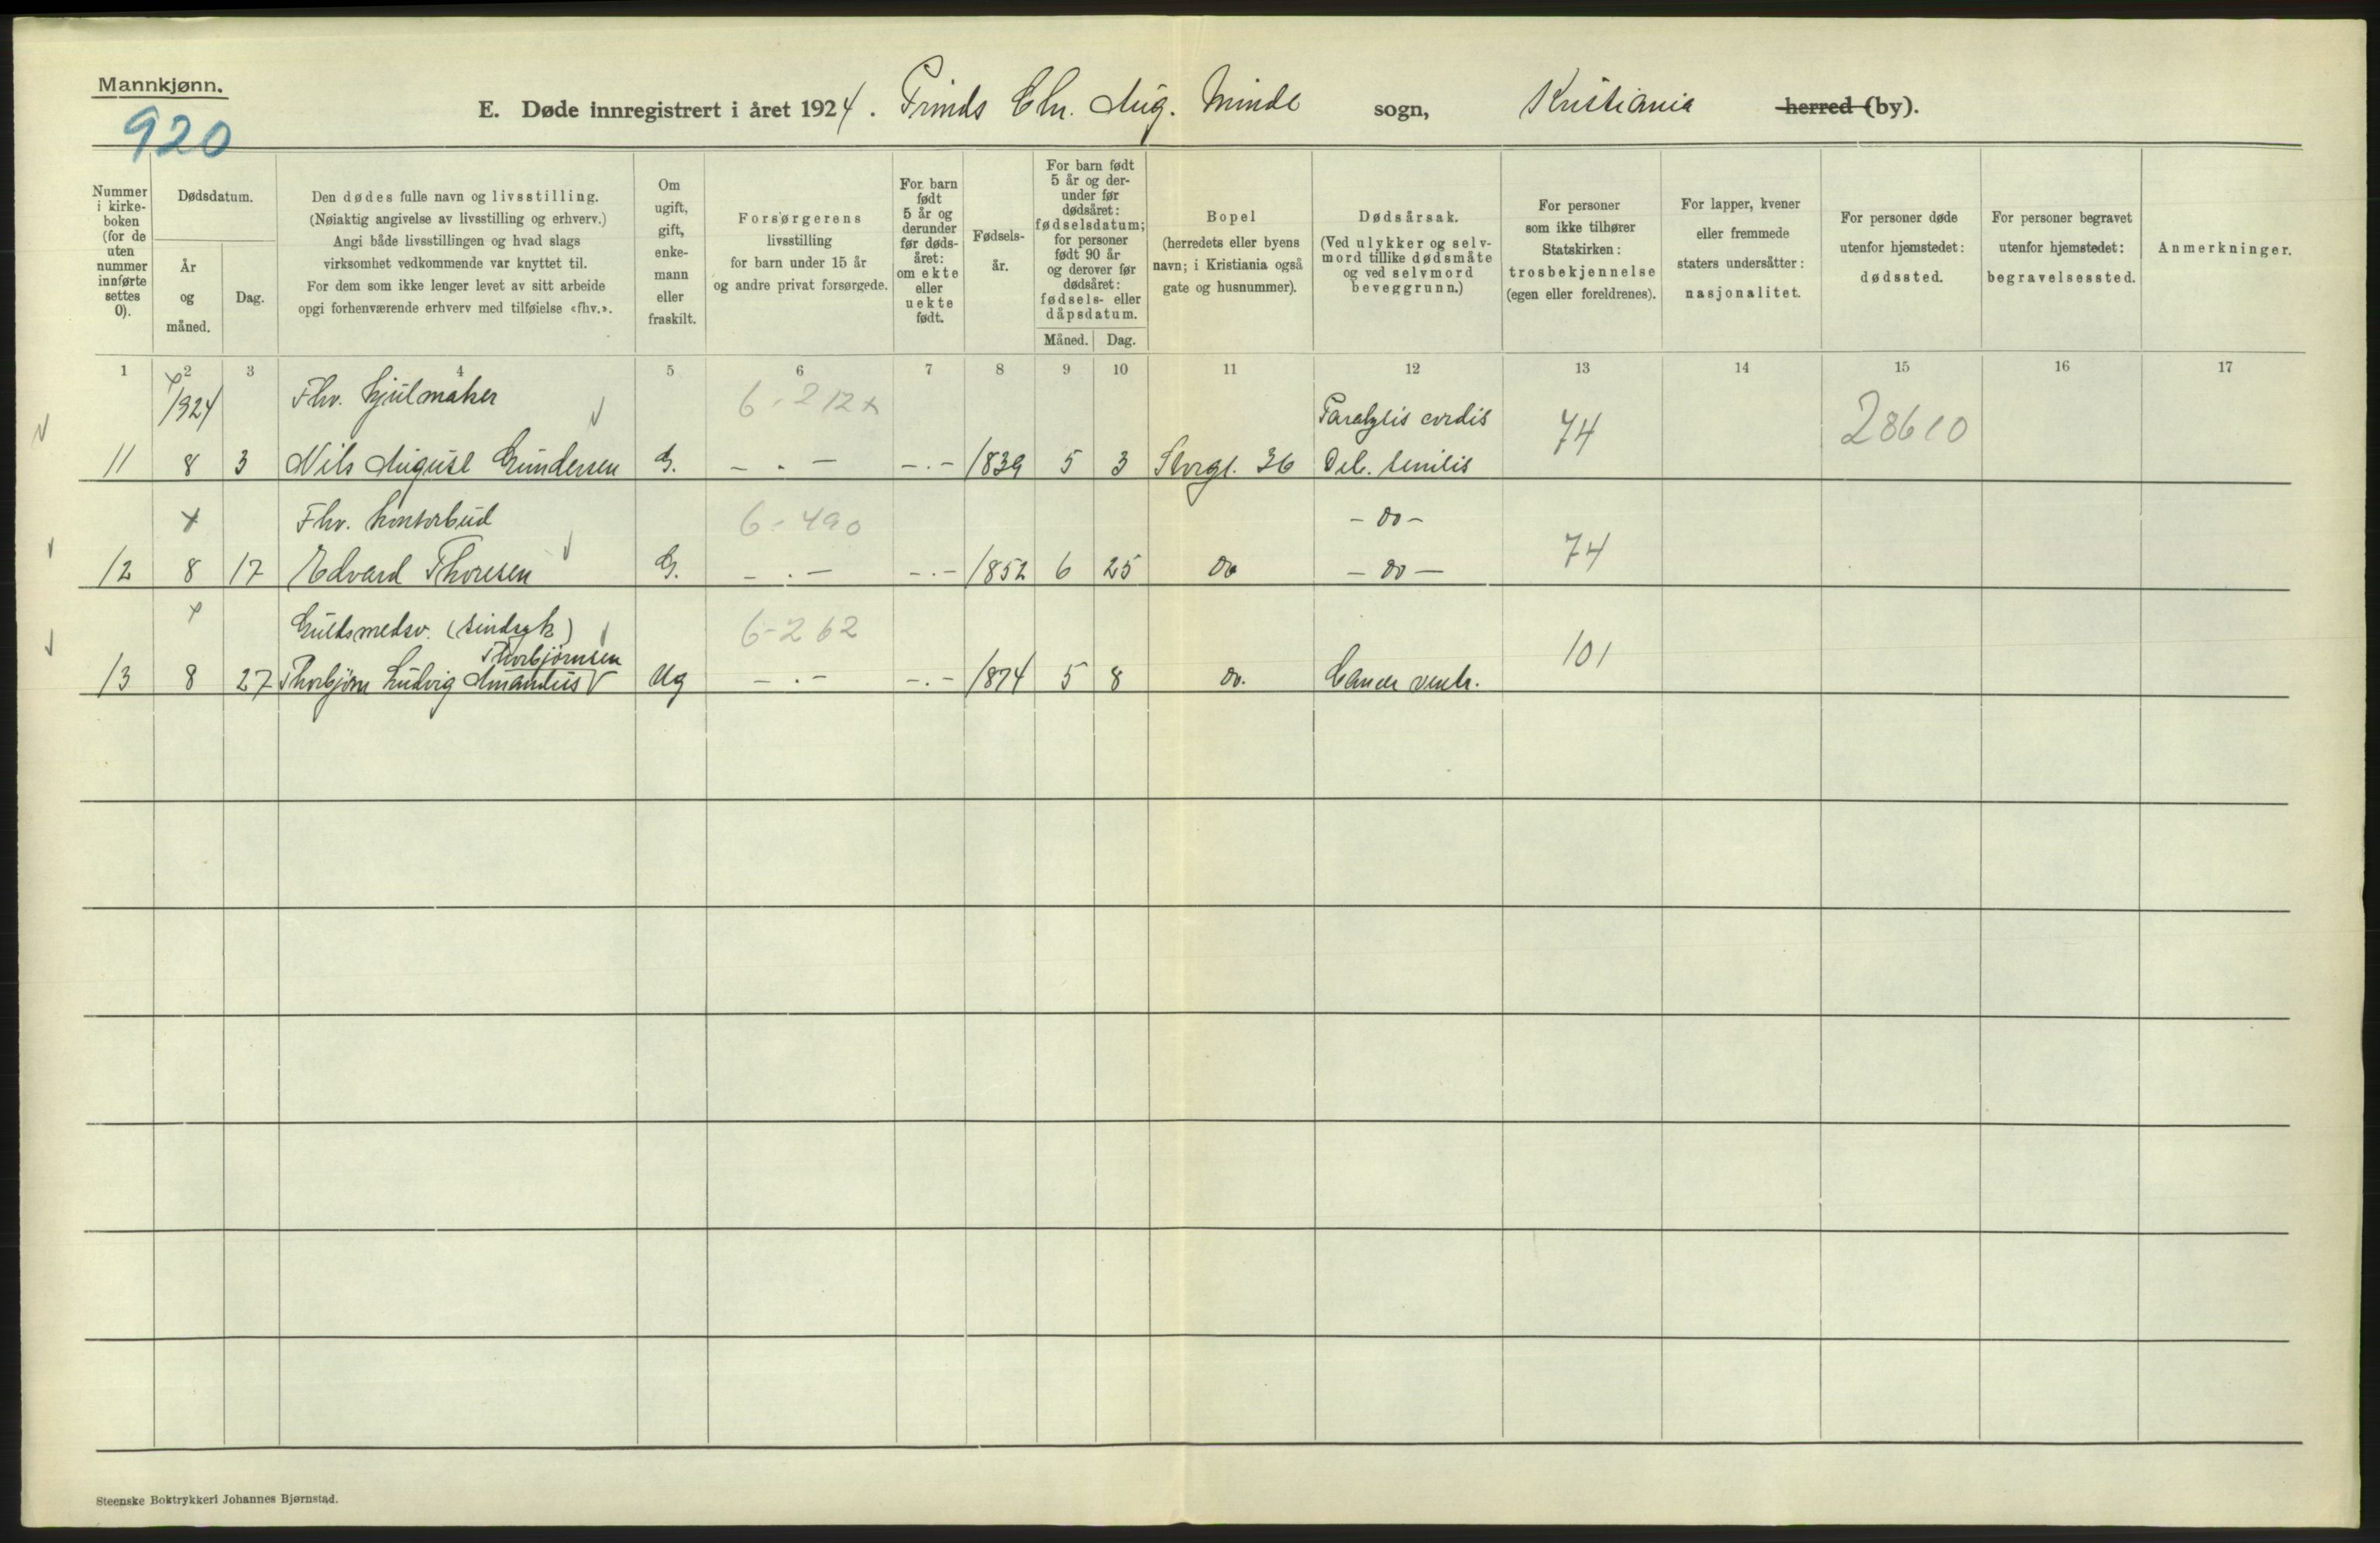 Mannkjønn.
920
E. Døde innregistrert i året 1924. Prinds Chr. Aug. Minde sogn, Kristiania herred (by).
Nummer i kirke-boken (for de uten nummer innførte settes 0).
Dødsdatum.
År og måned.
Dag.
Den dødes fulle navn og livsstilling.
(Nøiaktig angivelse av livsstilling og erhverv.)
Angi både livsstillingen og hvad slags
virksomhet vedkommende var knyttet til.
For dem som ikke lenger levet av sitt arbeide
opgi forhenværende erhverv med tilføielse «fhv.».
Om ugift, gift, enke-mann eller fraskilt.
Forsørgerens
livsstilling
for barn under 15 år
og andre privat forsørgede.
For barn født 5 år og derunder før døds-året: om ekte eller uekte født.
Fødsels-år.
For barn født 5 år og der-under før dødsåret: fødselsdatum; for personer født 90 år og derover før dødsåret: fødsels- eller dåpsdatum.
Måned. Dag.
Bopel
(herredets eller byens
navn; i Kristiania også
gate og husnummer).
Dødsårsak.
(Ved ulykker og selv-
mord tillike dødsmåte
og ved selvmord
beveggrunn.)
For personer
som ikke tilhører
Statskirken:
trosbekjennelse
(egen eller foreldrenes).
For lapper, kvener
eller fremmede
staters undersåtter:
nasjonalitet.
For personer døde
utenfor hjemstedet:
dødssted.
For personer begravet
utenfor hjemstedet:
begravelsessted.
Anmerkninger.
1 2 3 4 5 6 7 8 9 10 11 12 13 14 15 16 17
1924 Fhv. hjulmaker 6-212x Paralysis cordis 74 28610
11 8 3 Nils August Gundersen G. – . – – . – 1839 5 3 Storgt. 36 Deb. senilis
x Fhv. kontorbud 6-490 – do –
12 8 17 Edvard Thoresen G. – . – – . – 1852 6 25 do – do – 74
x Guldsmedsv. (sindsyk) 6-262 101
Thorbjørnsen
13 8 27 Thorbjørn Ludvig Amandus Ug – . – – . – 1874 5 8 do. Cancer ventr.
Steenske Boktrykkeri Johannes Bjørnstad.